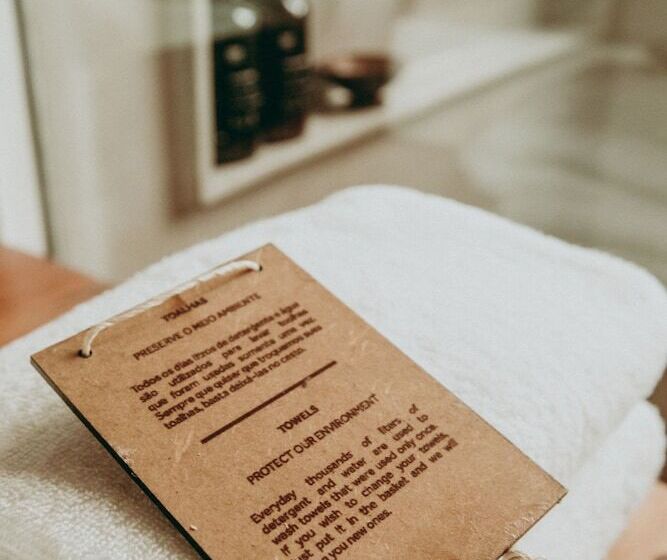 TOALHAS
PRESERVE O MEIO AMBIENTE
Todos os dias litros de detergente e água
são utilizados para lavar toalhas
que foram usadas somente uma vez.
Sempre que quiser que troquemos suas
toalhas, basta deixá-las no cesto.
TOWELS
PROTECT OUR ENVIRONMENT
Everyday thousands of liters of
detergent and water are used to
wash towels that were used only once.
If you wish to change your towels,
just put it in the basket and we will
you new ones.